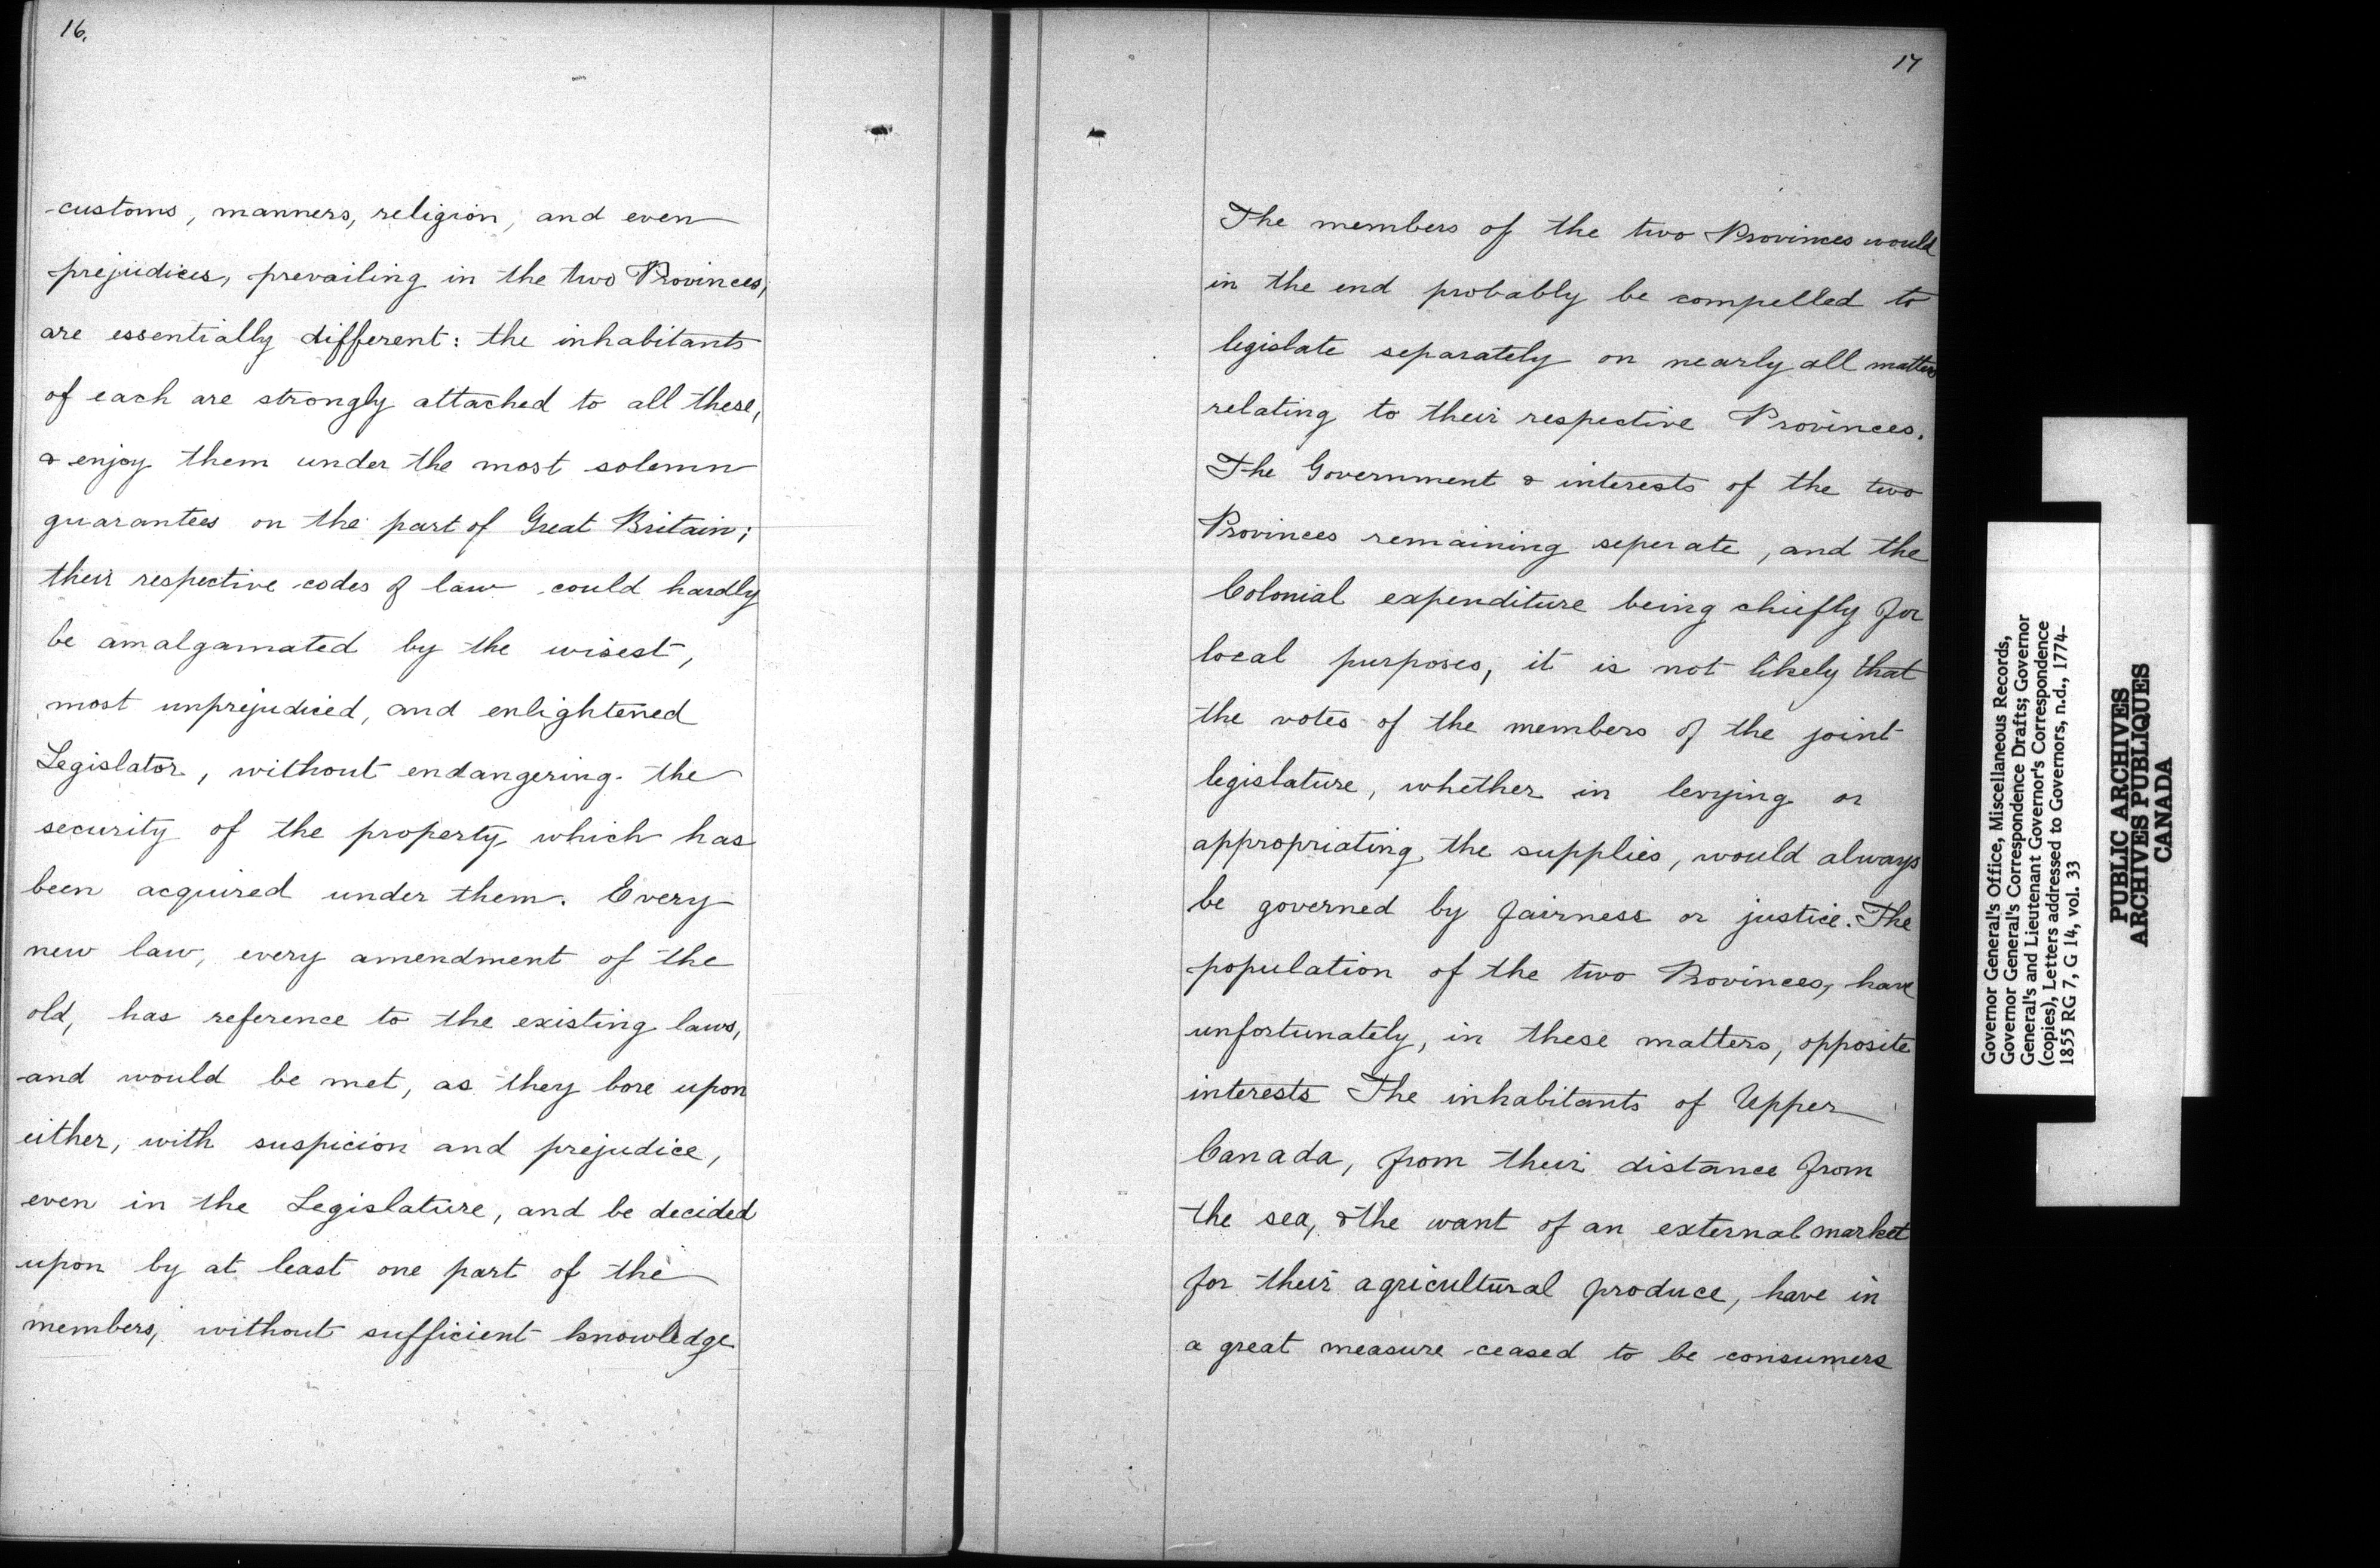 16.
customs, manners, religion, and even
prejudices, prevailing in the two Provinces,
are essentially different: the inhabitants
of each are strongly attached to all these,
& enjoy them under the most solemn
guarantees on the part of Great Britain;
their respective codes of law could hardly
be amalgamated by the wisest,
most unprejudiced, and enlightened
Legislator, without endangering the
security of the property which has
been acquired under them. Every
new law, every amendment of the
old, has reference to the existing laws,
and would be met, as they bore upon
either, with suspicion and prejudice,
even in the Legislature, and be decided
upon by at least one part of the
members, without sufficient knowledge
17
The members of the two Provinces would
in the end probably be compelled to
legislate separately on nearly all matters
relating to their respective Provinces.
The Government & interests of the two
Provinces remaining seperate, and the
Colonial expenditure being chiefly for
local purposes, it is not likely that
the votes of the members of the joint
legislature, whether in levying or
appropriating the supplies, would always
be governed by fairness or justice. The
population of the two Provinces, have
unfortunately, in these matters, opposite
interests The inhabitants of Upper
Canada, from their distance from
the sea, & the want of an external market
for their agricultural produce, have in
a great measure ceased to be consumers
Governor General's Office, Miscellaneous Records,
Governor General's Correspondence Drafts; Governor
General's and Lieutenant Governor's Correspondence
(copies), Letters addressed to Governors, n.d., 1774-
1855 RG 7, G 14, vol. 33
PUBLIC ARCHIVES
ARCHIVES PUBLIQUES
CANADA